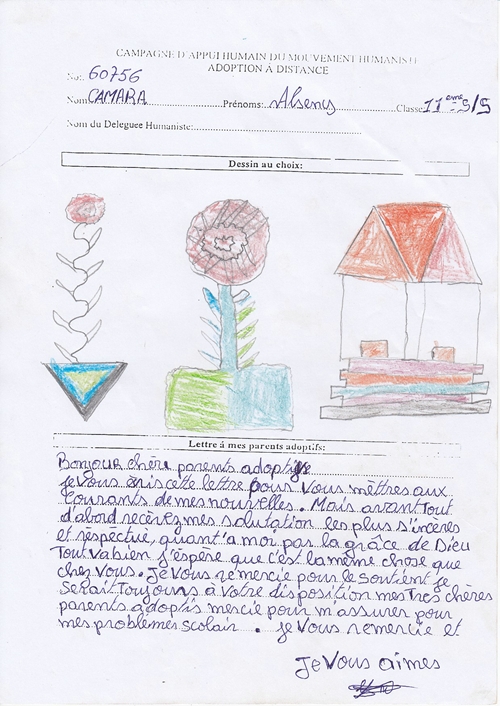 CAMPAGNE D'APPUI HUMAIN DU MOUVEMENT HUMANISTE
ADOPTION À DISTANCE
No: 60756
Nom CAMARA Prénoms: Alseny Classe 11ème S/S
Nom du Deleguee Humaniste:
Dessin au choix:
Lettre á mes parents adoptifs:
Bonjour chère parents adoptifs
je vous ecris cette lettre pour vous mêttres aux
Courants de mes nouvelles. Mais avant tout
d'abord recevez mes salutation les plus s'incères
et respectue, quant'a moi par la grâce de Dieu
Tout va bien j'éspère que c'est la même chose que
chez Vous. Je vous remercie pour le soutient je
Serait Toujours à votre disposition mes Très chères
parents adoptis mercie pour m'assurer pour
mes problèmes scolair. je vous remercie et
Je Vous aimes